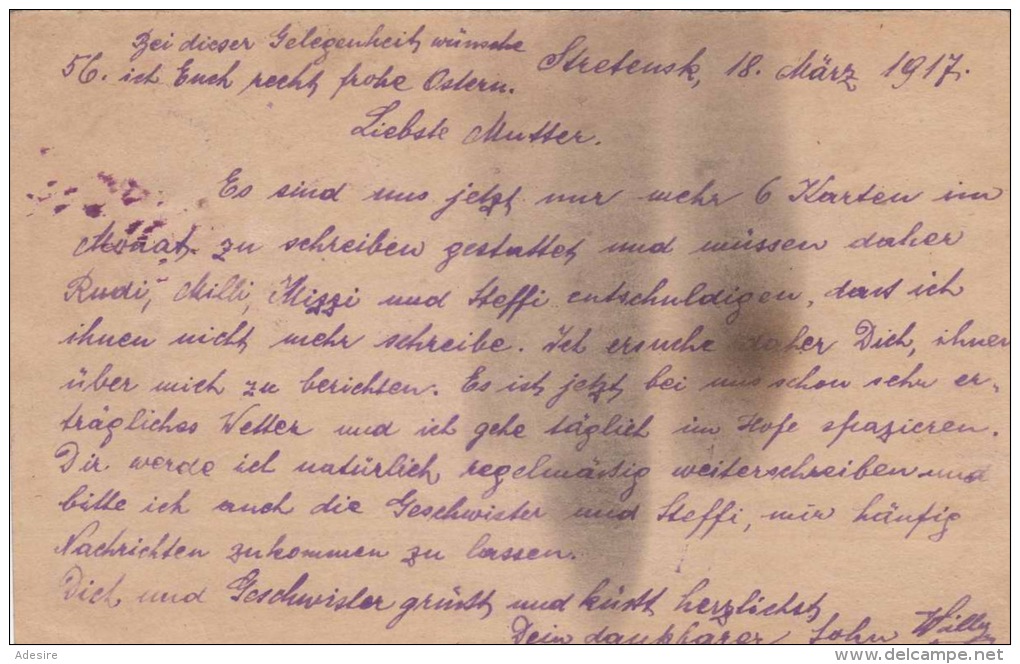 Bei dieser Gelegenheit wünsche
56. ich Euch recht frohe Ostern.
Stretensk, 18. März 1917.
Liebste Mutter.
Es sind uns jetzt nur mehr 6 Karten im
Monat zu schreiben gestattet und müssen daher
Rudi, Milli, Mizzi und Steffi entschuldigen, dass ich
ihnen nicht mehr schreibe. Ich ersuche daher Dich, ihnen
über mich zu berichten. Es ist jetzt bei uns schon sehr er-
trägliches Wetter und ich gehe täglich im Hofe spazieren.
Dir werde ich natürlich regelmässig weiterschreiben und
bitte ich auch die Geschwister und Steffi, mir häufig
Nachrichten zukommen zu lassen.
Dich und Geschwister grüsst und küsst herzlichst
Dein dankbarer Sohn Willy
Adesire
delcampe.net